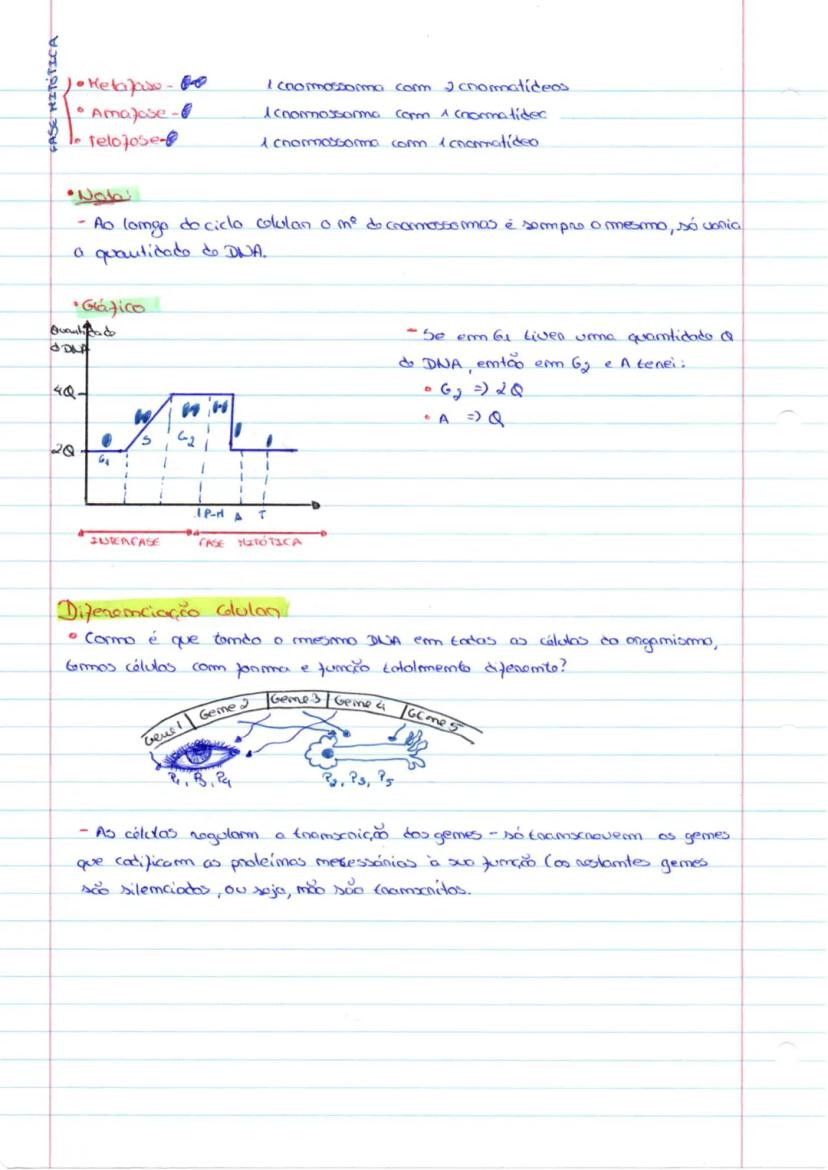 FASE MITÓTICA
• Metafase - 1 cromossoma com 2 cromatídeos
• Anafase - 1 cromossoma com 1 cromatídeo
• Telofase - 1 cromossoma com 1 cromatídeo
• Nota:
- Ao longo do ciclo celular o nº de cromossomas é sempre o mesmo, só varia
a quantidade de DNA.
• Gráfico
Quantidade
d DNA
4Q
2Q
G1 S G2
P-M A T
INTERFASE FASE MITÓTICA
- Se em G1 tiver uma quantidade Q
de DNA, então em G2 e A terei:
• G2 => 2Q
• A => Q
Diferenciação Celular
• Como é que tendo o mesmo DNA em todas as células do organismo,
temos células com forma e função totalmente diferente?
Gene 1 | Gene 2 | Gene 3 | Gene 4 | Gene 5
P1, P3, P4 P2, P3, P5
- As células regulam a transcrição dos genes - só transcrevem os genes
que codificam as proteínas necessárias à sua função (os restantes genes
são silenciados, ou seja, não são transcritos.